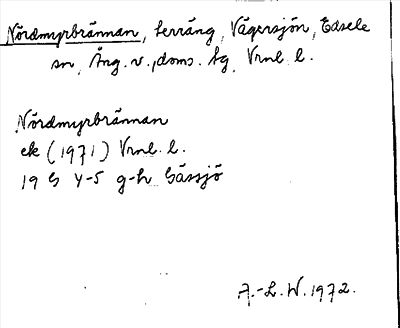 Nördmyrbrännan, terräng, Vägersjön, Edsele
sn, Ång. v., doms. tg, Vrnl. l.
Nördmyrbrännan
ek (1971) Vrnl. l.
19 G 4-5 g-h Gässjö
A.-L. W. 1972.